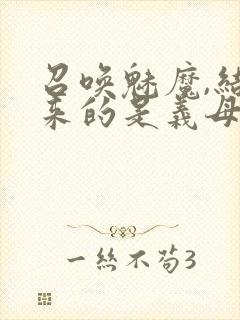 召唤魅魔,结
来的是义母
一丝不苟3